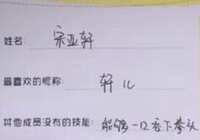 姓名: 宋亚轩
最喜欢的昵称: 轩儿
其他成员没有的技能: 能够一口吞下拳头